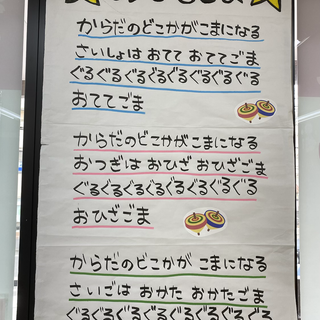 からだのどこかがこまになる
さいしょは おてて おててごま
ぐるぐるぐるぐるぐるぐるぐる
おててごま
からだのどこかがこまになる
おつぎは おひざ おひざごま
ぐるぐるぐるぐるぐるぐるぐる
おひざごま
からだのどこかが こまになる
さいごは おかた おかたごま
ぐるぐるぐるぐるぐるぐるぐる